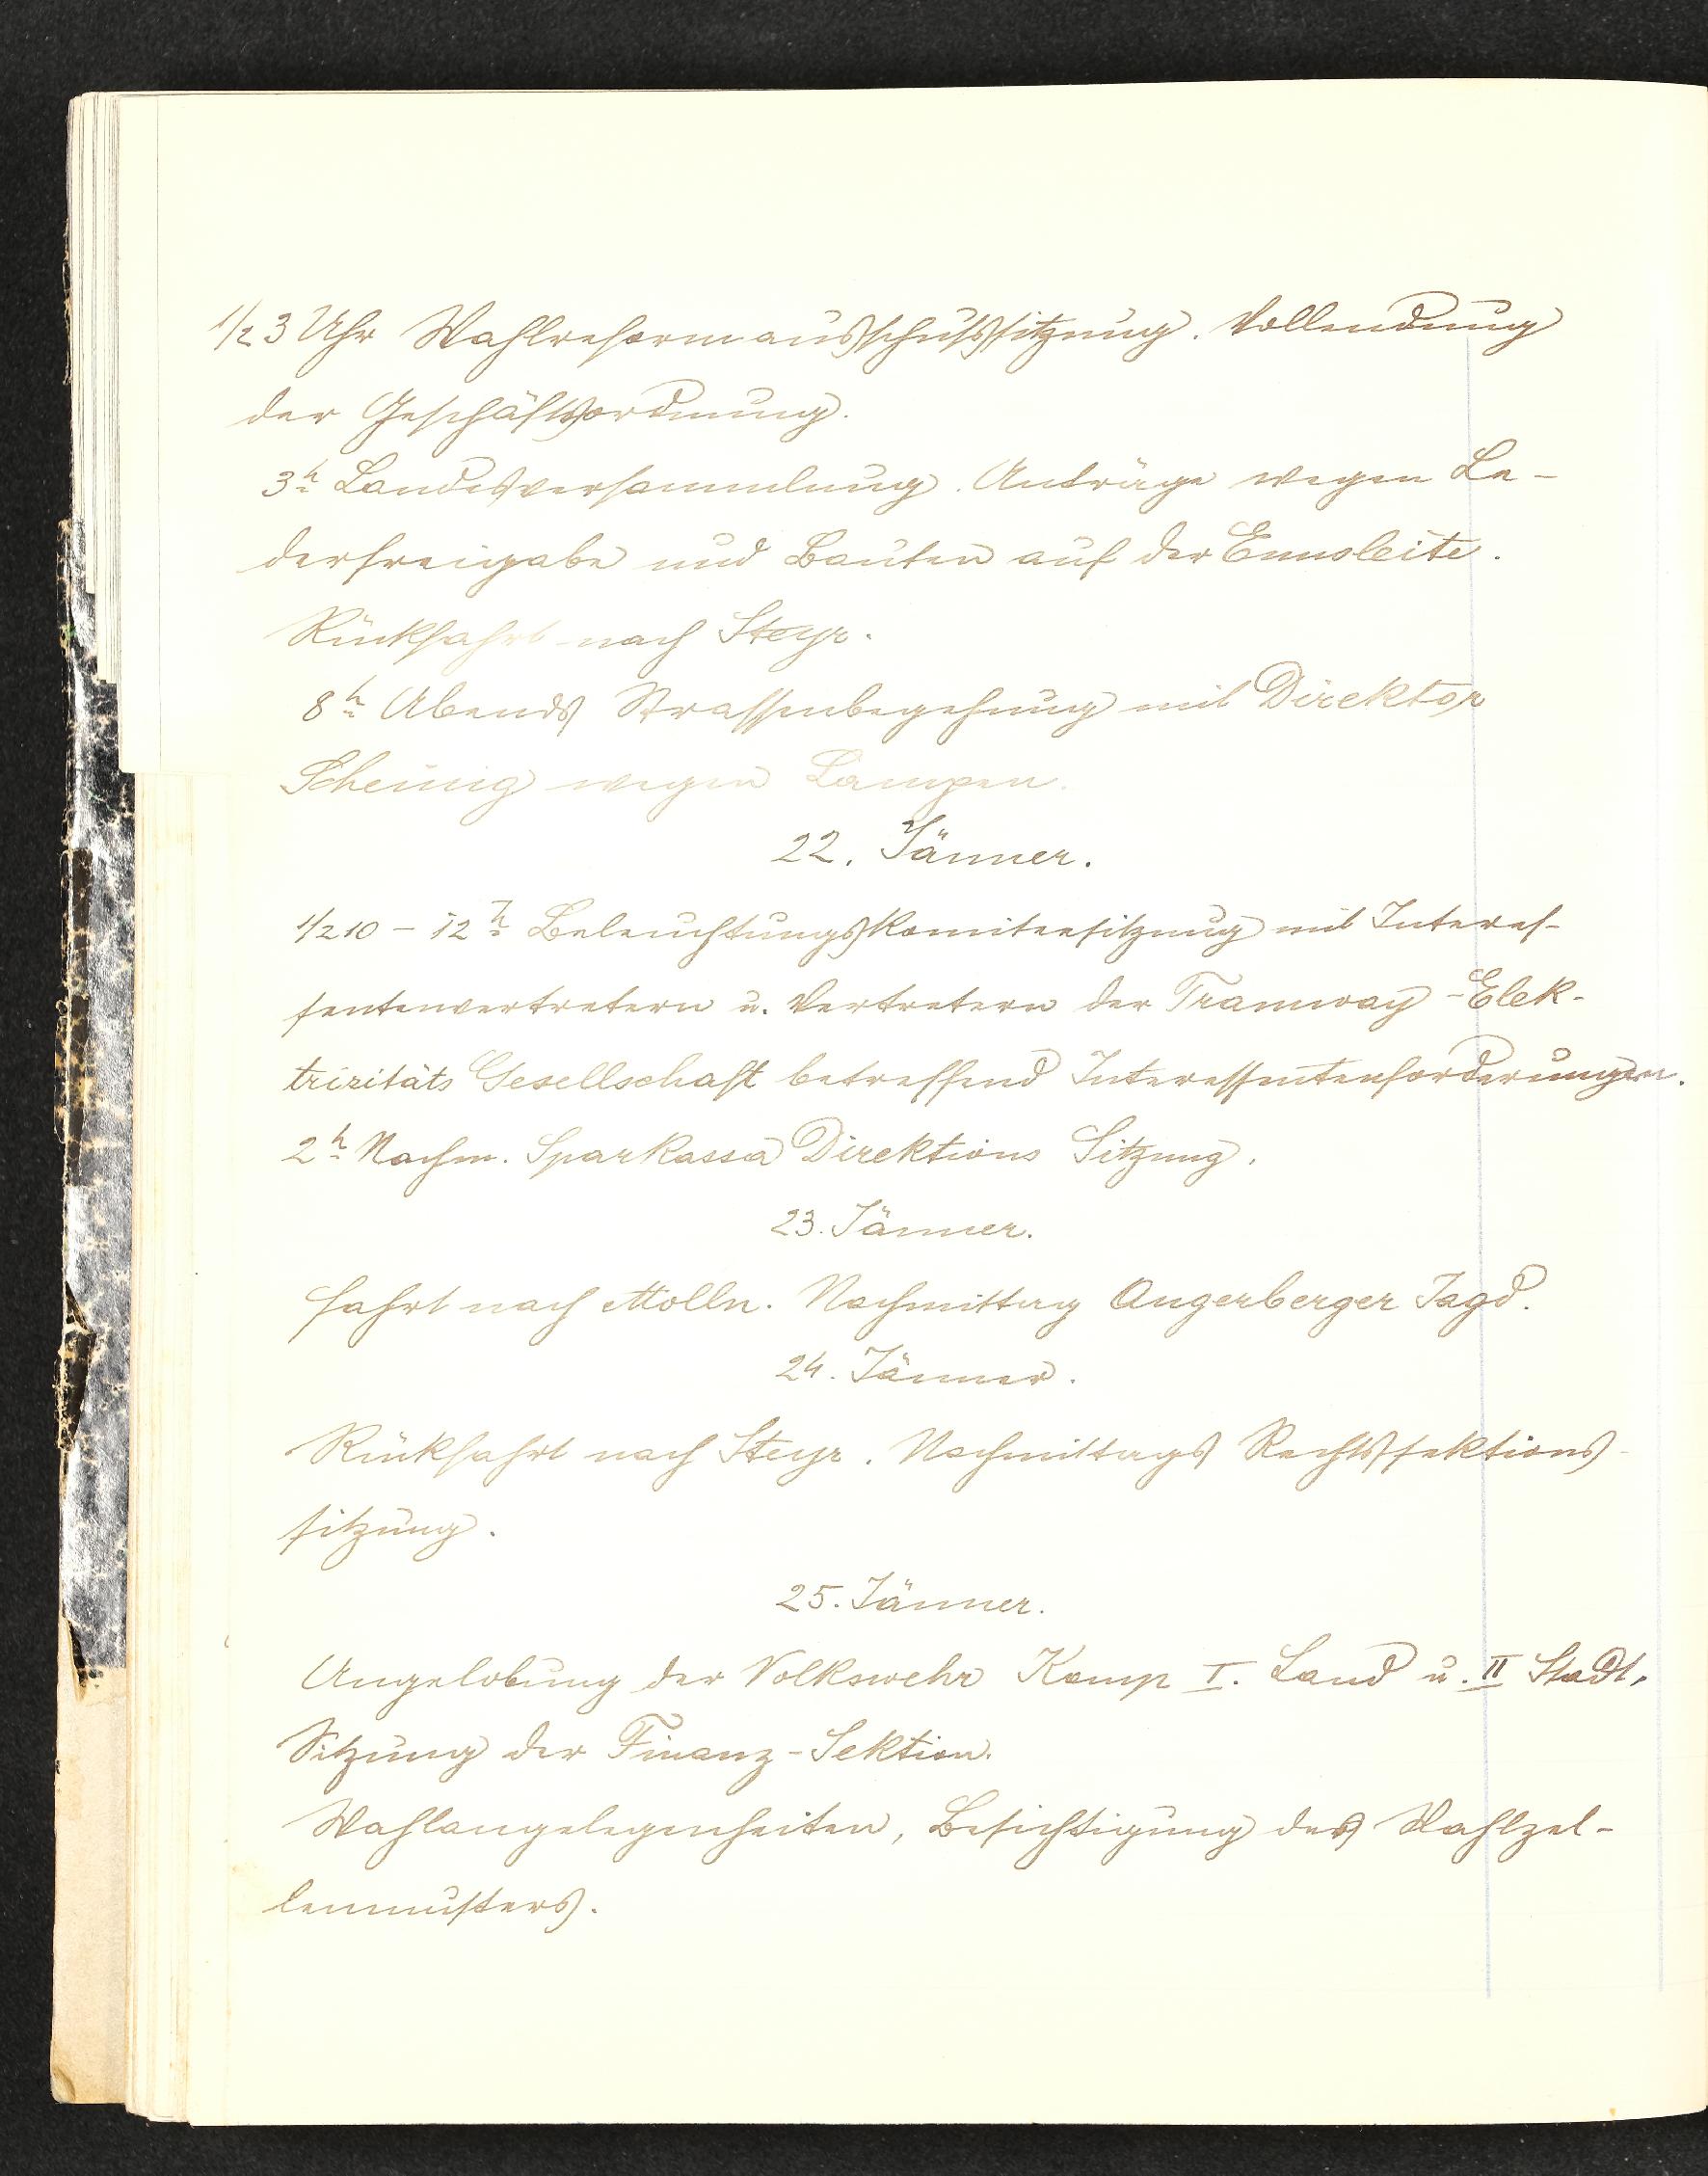 1/2 3 Uhr Wahlreformausschußsitzung. Vollendung
der Geschäftsordnung.
3h Landesversammlung. Anträge wegen Le-
derfreigabe und Bauten auf der Ennsleite.
Rückfahrt nach Steyr.
8h Abends Strassenbegehung mit Direktor
Scheinig wegen Lampen.
22. Jänner.
1/2 10 - 12h Beleuchtungskomiteesitzung mit Interes-
sentenvertretern u. Vertretern der Tramway-Elek-
trizitäts Gesellschaft betreffend Interessentenforderungen.
2h Nachm. Sparkassa Direktions Sitzung.
23. Jänner.
Fahrt nach Molln. Nachmittag Angerberger Jagd.
24. Jänner.
Rückfahrt nach Steyr. Nachmittags Rechtssektions-
sitzung.
25. Jänner.
Angelobung der Volkswehr Komp I. Land u. II Stadt.
Sitzung der Finanz-Sektion.
Wahlangelegenheiten, Besichtigung des Wahlzel-
lenmusters.